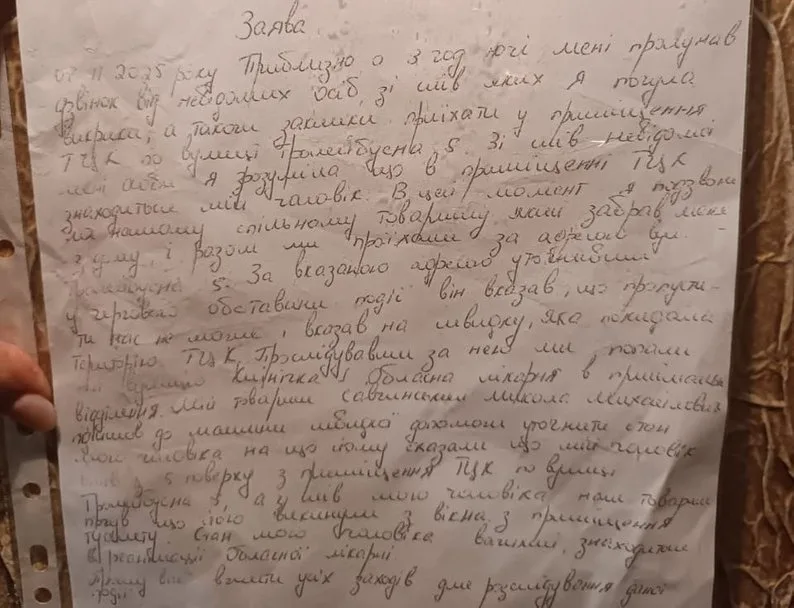 Заява
07 11 2025 року Приблизно о 3 год ночі мені пролунав
дзвінок від невідомих осіб, зі слів яких я почула
викрики, а також заклики приїхати у приміщення
ТЦК по вулиці Тролейбусна 5. Зі слів невідомої
мені особи я зрозуміла що в приміщенні ТЦК
знаходиться мій чоловік. В цей момент я подзвони
ла нашому спільному товаришу який забрав мене
з дому, і разом ми проїхали за адресою вул.
Тролейбусна 5. За вказаною адресою уточнивши
у чергового обставини події він вказав, що пропусти-
ти нас не може і вказав на швидку, яка покидала
територію ТЦК. Прослідувавши за нею ми попали
на вулицю Клінічка 1 Обласна лікарня в приймальне
відділення. Мій товариш Савчинський Микола Михайлович
підійшов до машини швидкої допомоги уточнити стан
мого чоловіка на що йому сказали що мій чоловік
з 5 поверху з приміщення ТЦК по вулиці
Тролейбусна 5, а зі слів мого чоловіка наш товариш
почув що його викинули з вікна з приміщення
туалету. Стан мого чоловіка важкий, знаходиться
в реанімації Обласної лікарні.
Прошу вжити усіх заходів для розслідування даної
події